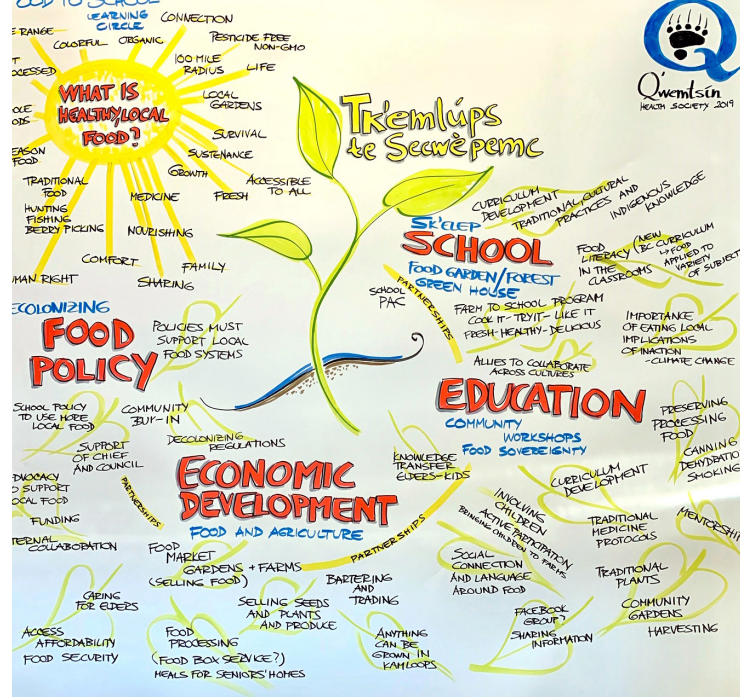 FOOD TO SCHOOL
LEARNING
CIRCLE
CONNECTION
RANGE
COLORFUL
ORGANIC
PESTICIDE FREE
NON-GMO
100 MILE
RADIUS
LIFE
WHAT IS
HEALTHY/LOCAL
FOOD?
LOCAL
GARDENS
SURVIVAL
SUSTENANCE
GROWTH
FRESH
ACCESSIBLE
TO ALL
FOOD
TRADITIONAL
FOOD
HUNTING
FISHING
BERRY PICKING
MEDICINE
NOURISHING
COMFORT
FAMILY
SHARING
RIGHT
Tk'emlúps
te Secwèpemc
Q'wemtsín
HEALTH SOCIETY 2019
SK'ELEP
SCHOOL
FOOD GARDEN/FOREST
GREEN HOUSE
SCHOOL
PAC
PARTNERSHIPS
CURRICULUM
DEVELOPMENT
TRADITIONAL, CULTURAL
PRACTICES AND
INDIGENOUS
KNOWLEDGE
FOOD
LITERACY
IN THE
CLASSROOMS
(NEW
BC CURRICULUM
↳ FOOD
APPLIED TO
VARIETY
OF SUBJECT
FARM TO SCHOOL PROGRAM
COOK IT - TRY IT - LIKE IT
FRESH-HEALTHY-DELICIOUS
ALLIES TO COLLABORATE
ACROSS CULTURES
IMPORTANCE
OF EATING LOCAL
IMPLICATIONS
OF INACTION
-CLIMATE CHANGE
ECOLONIZING
FOOD
POLICY
POLICIES MUST
SUPPORT LOCAL
FOOD SYSTEMS
SCHOOL POLICY
TO USE MORE
LOCAL FOOD
COMMUNITY
BUY-IN
SUPPORT
OF CHIEF
AND COUNCIL
DECOLONIZING
REGULATIONS
SUPPORT
FOOD
FUNDING
COLLABORATION
PARTNERSHIPS
EDUCATION
COMMUNITY
WORKSHOPS
FOOD SOVEREIGNTY
PRESERVING
PROCESSING
FOOD
CANNING
DEHYDRATIO
SMOKING
KNOWLEDGE
TRANSFER
ELDERS-KIDS
CURRICULUM
DEVELOPMENT
INVOLVING
CHILDREN
ACTIVE PARTICIPATION
BRINGING CHILDREN TO FARMS
TRADITIONAL
MEDICINE
PROTOCOLS
MENTORSHIP
SOCIAL
CONNECTION
AND LANGUAGE
AROUND FOOD
TRADITIONAL
PLANTS
COMMUNITY
GARDENS
HARVESTING
FACEBOOK
GROUP?
SHARING
INFORMATION
ECONOMIC
DEVELOPMENT
FOOD AND AGRICULTURE
PARTNERSHIPS
FOOD
MARKET
GARDENS + FARMS
(SELLING FOOD)
BARTERING
AND
TRADING
SELLING SEEDS
AND PLANTS
AND PRODUCE
CARING
FOR ELDERS
ACCESS
AFFORDABILITY
FOOD SECURITY
FOOD
PROCESSING
(FOOD BOX SERVICE?)
MEALS FOR SENIORS' HOMES
ANYTHING
CAN BE
GROWN IN
KAMLOOPS